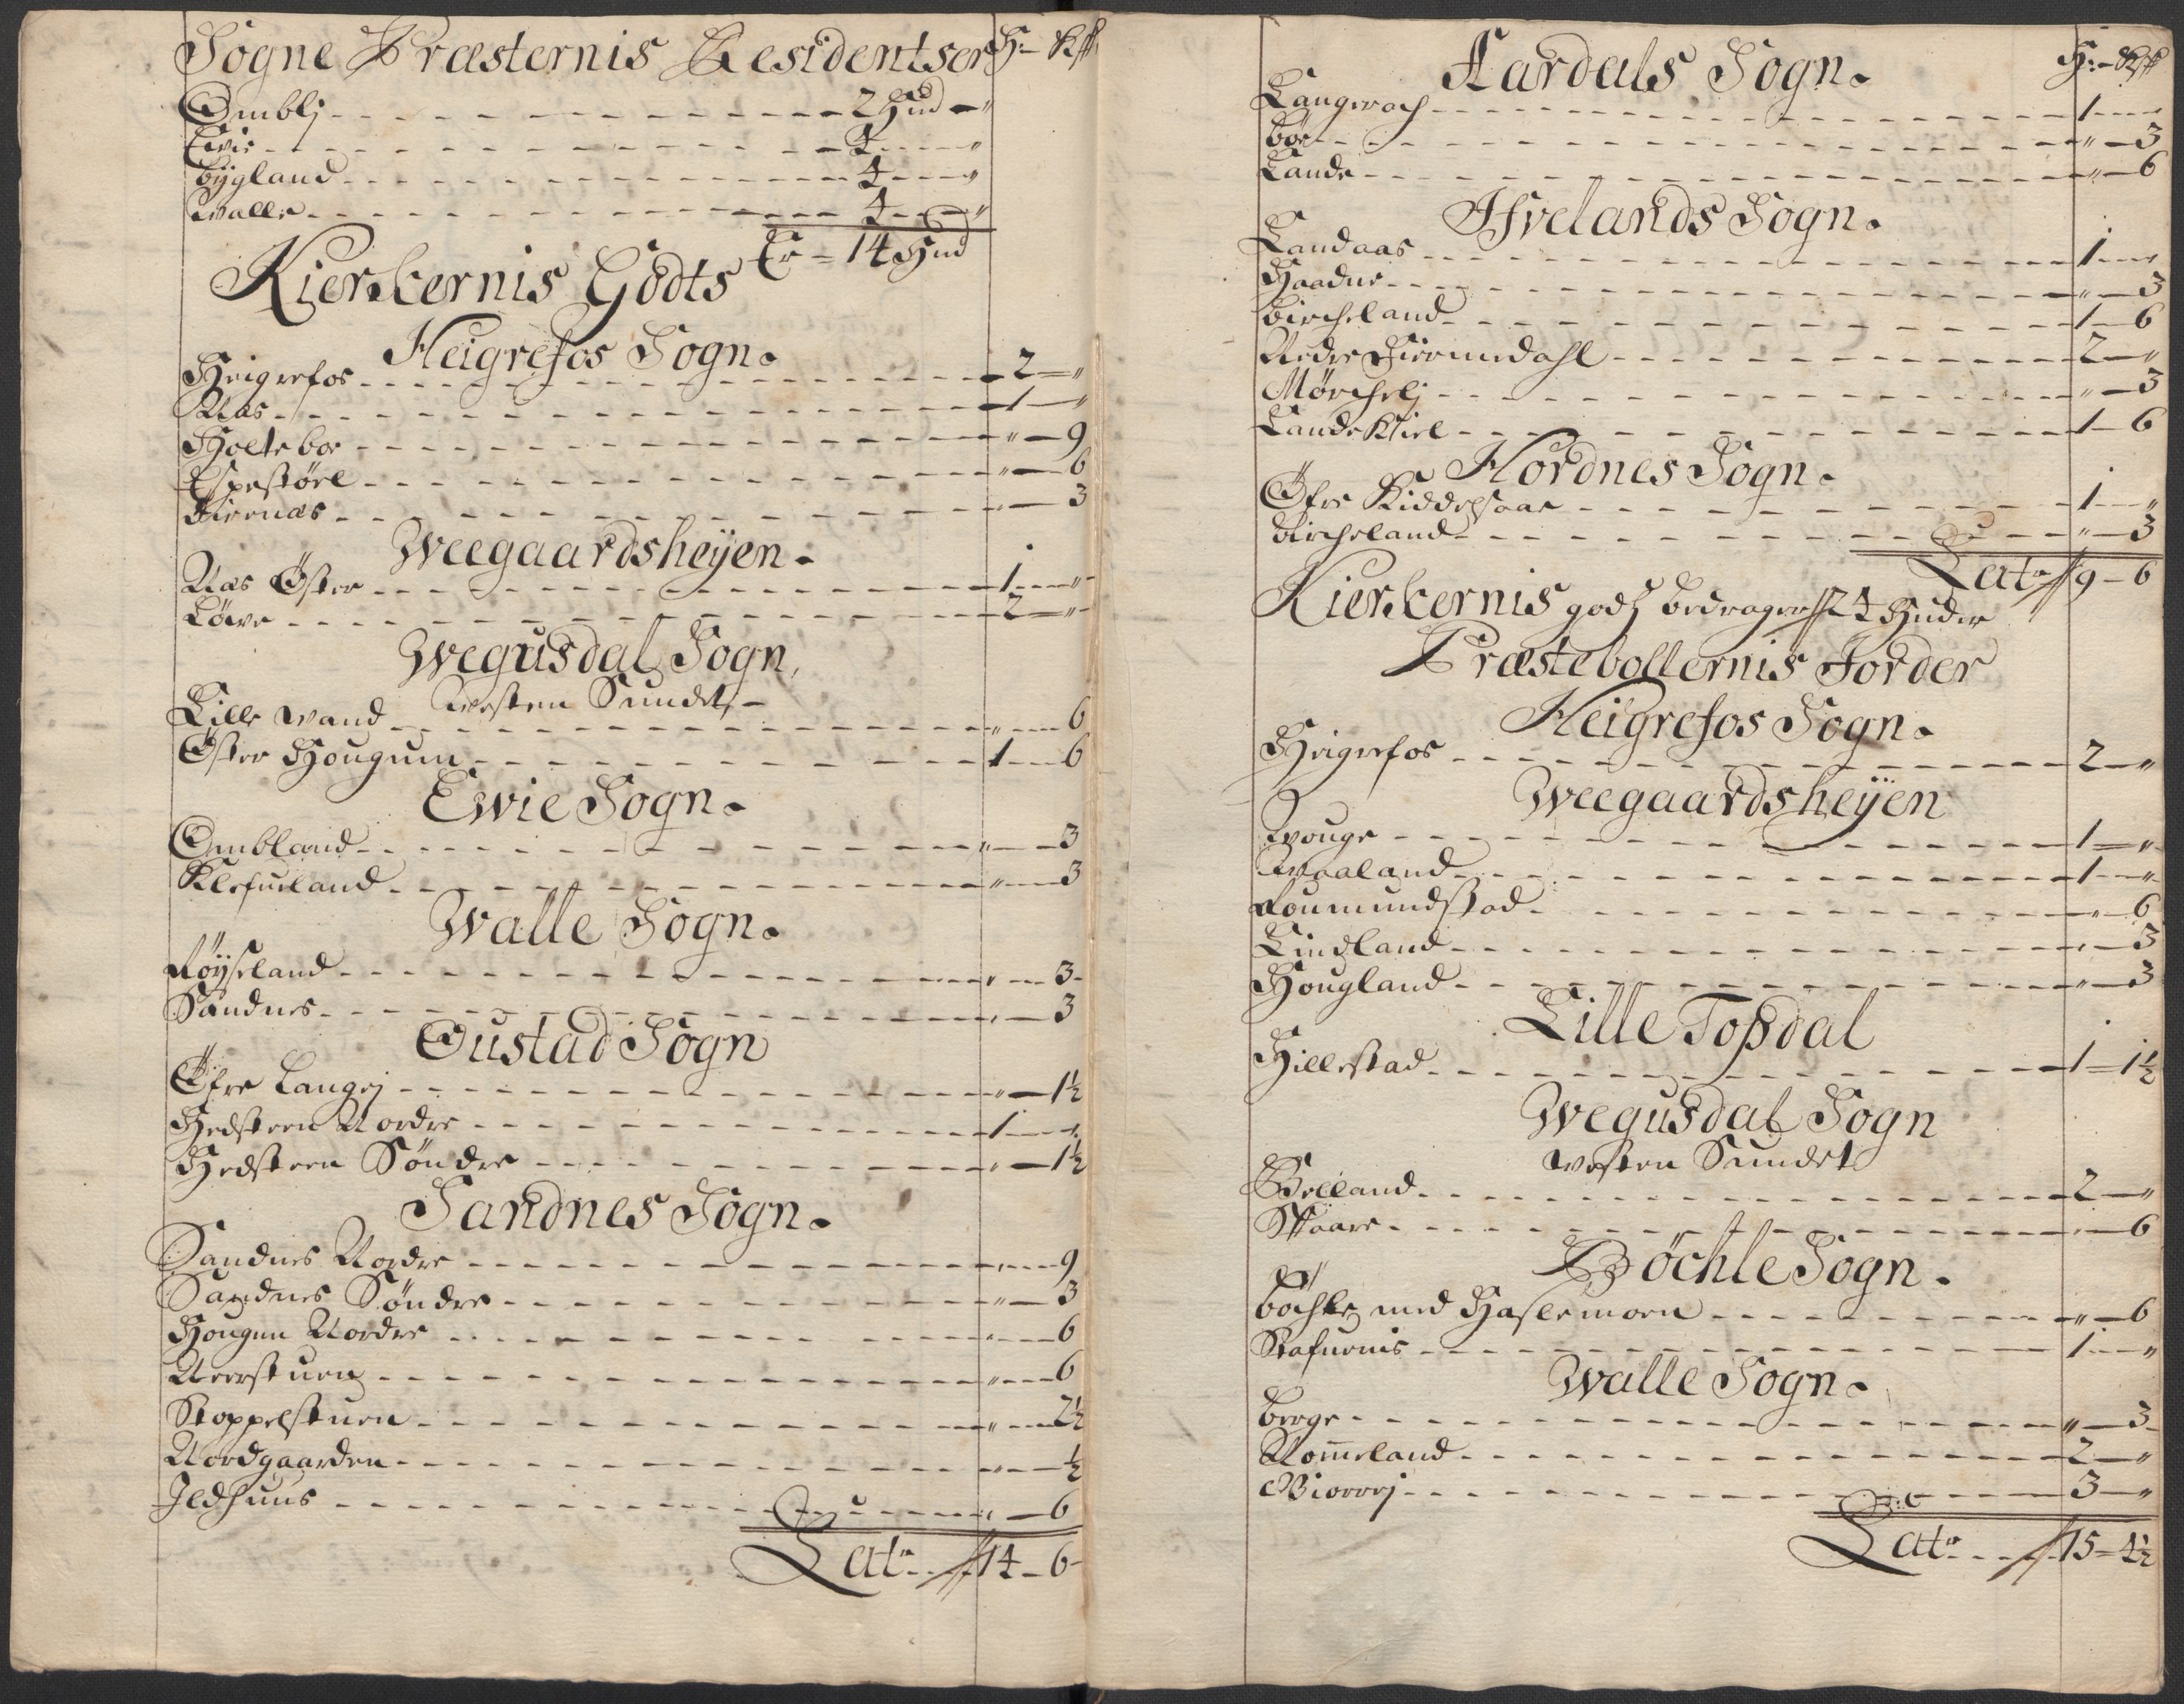 Sogne Præsternis Residentser H:- Kll
Omblj - - - 2 Hud - "
Ewie - - - 4 - - "
bygland - - - 4 - - "
Walle - - - 4 - - "
Er = 14 Hud
Kierkernis Godts
Heigrefos Sogn.
Heigrefos - - - 2 - "
Næs - - - 1 - "
Holtebør - - - " - 9
Espestøel - - - " - 6
Birenæs - - - " - 3
Weegaardsheÿen.
Næs Öster - - - 1 - "
Löwe - - - 2 - "
Wegusdal Sogn,
Westen Sundet, -
Lille Wand - - - " - 6
Öster Hougum - - - 1 - 6
Ewie Sogn.
Ombland - - - " - 3
Klefueland - - - " - 3
Walle Sogn.
Röÿseland - - - " - 3
Sandnes - - - " - 3
Oustad Sogn
Öfre Langej - - - " - 1½
Hedsteen Nordre - - - 1 - "
Hedsteen Söndre - - - " - 1½
Sandnes Sogn.
Sandnes Nordre - - - " - 9
Sandnes Söndre - - - " - 3
Hougen Nordre - - - " - 6
Neerstuen - - - " - 6
Stoppelstuen - - - " - 2½
Nordgaarden - - - " - ½
Jldhuus - - - " - 6
Latr. - - 14 - 6
Aardals Sogn. H:- Kll
Langerach - - - 1 - "
bøe - - - " - 3
Lande - - - " - 6
Ifvelands Sogn.
Landaas - - - 1 - "
Haadne - - - " - 3
Bircheland - - - 1 - 6
Nedre Fiermedahl - - - 2 - "
Mörchelj - - - " - 3
Landekiil - - - 1 - 6
Hordnes Sogn.
Öfre Kiddelsaae - - - 1 - "
Bircheland - - - " - 3
Latr 9 - 6
Kierkernis godtz bedrager 24 Huder
Præstebollernis Jorder
Heigrefos Sogn.
Heigrefos - - - 2 - "
Weegaardsheÿen
Wouge - - - 1 - "
Waaland - - - 1 - "
Roumundstad - - - " - 6
Lindland - - - " - 3
Hougland - - - " - 3
Lille Topdal
Hillestad - - - 1 - 1½
Wegusdal Sogn
Westen Sundet
Belland - - - 2 - "
Skaare - - - " - 6
Böchle Sogn.
Böchle med Haslemoen - - - " - 6
Stafuenis - - - 1 - "
Walle Sogn.
berge - - - " - 3
Rom̅eland - - - 2 - "
Biorrej - - - 3 - "
Latr. - - 15 - 4½